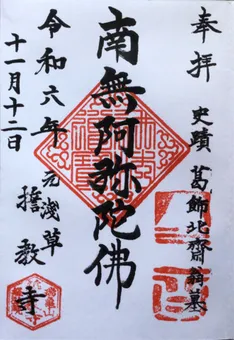 奉拝 史蹟 葛飾北齋翁墓
南無阿弥陀佛
元浅草 誓教寺
令和六年
十一月十二日